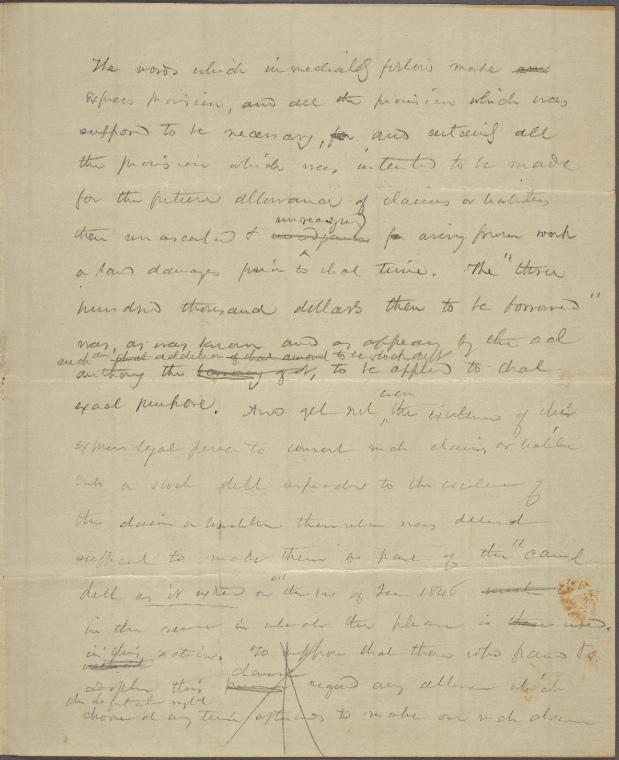 The words which immediately follow make
express provision, and all the provision which was
supposed to be necessary, and all
the provision which was intended to be made
for the future allowance of claims or liabilities
unrecognized
then unascertained & arising from work
or land damages prior to that time. The "three
hundred thousand dollars then to be borrowed"
was, as was known and as appears by the act
such an addition of that amount to the stock debt
authorizing the, to be applied to that
exact purpose. And yet not
even
the existence of this
express legal power to convert such claims or liabilities
into a stock debt to the existence of
the claim or liabilities themselves was deemed
sufficient to make them a part of the "canal
debt as it existed on the 1st of June 1846
in the sense in which the phrase is used.
in this section. To suppose that those who framed &
clause
adopted this regard any which
the
at any time afterwards to make on such claims